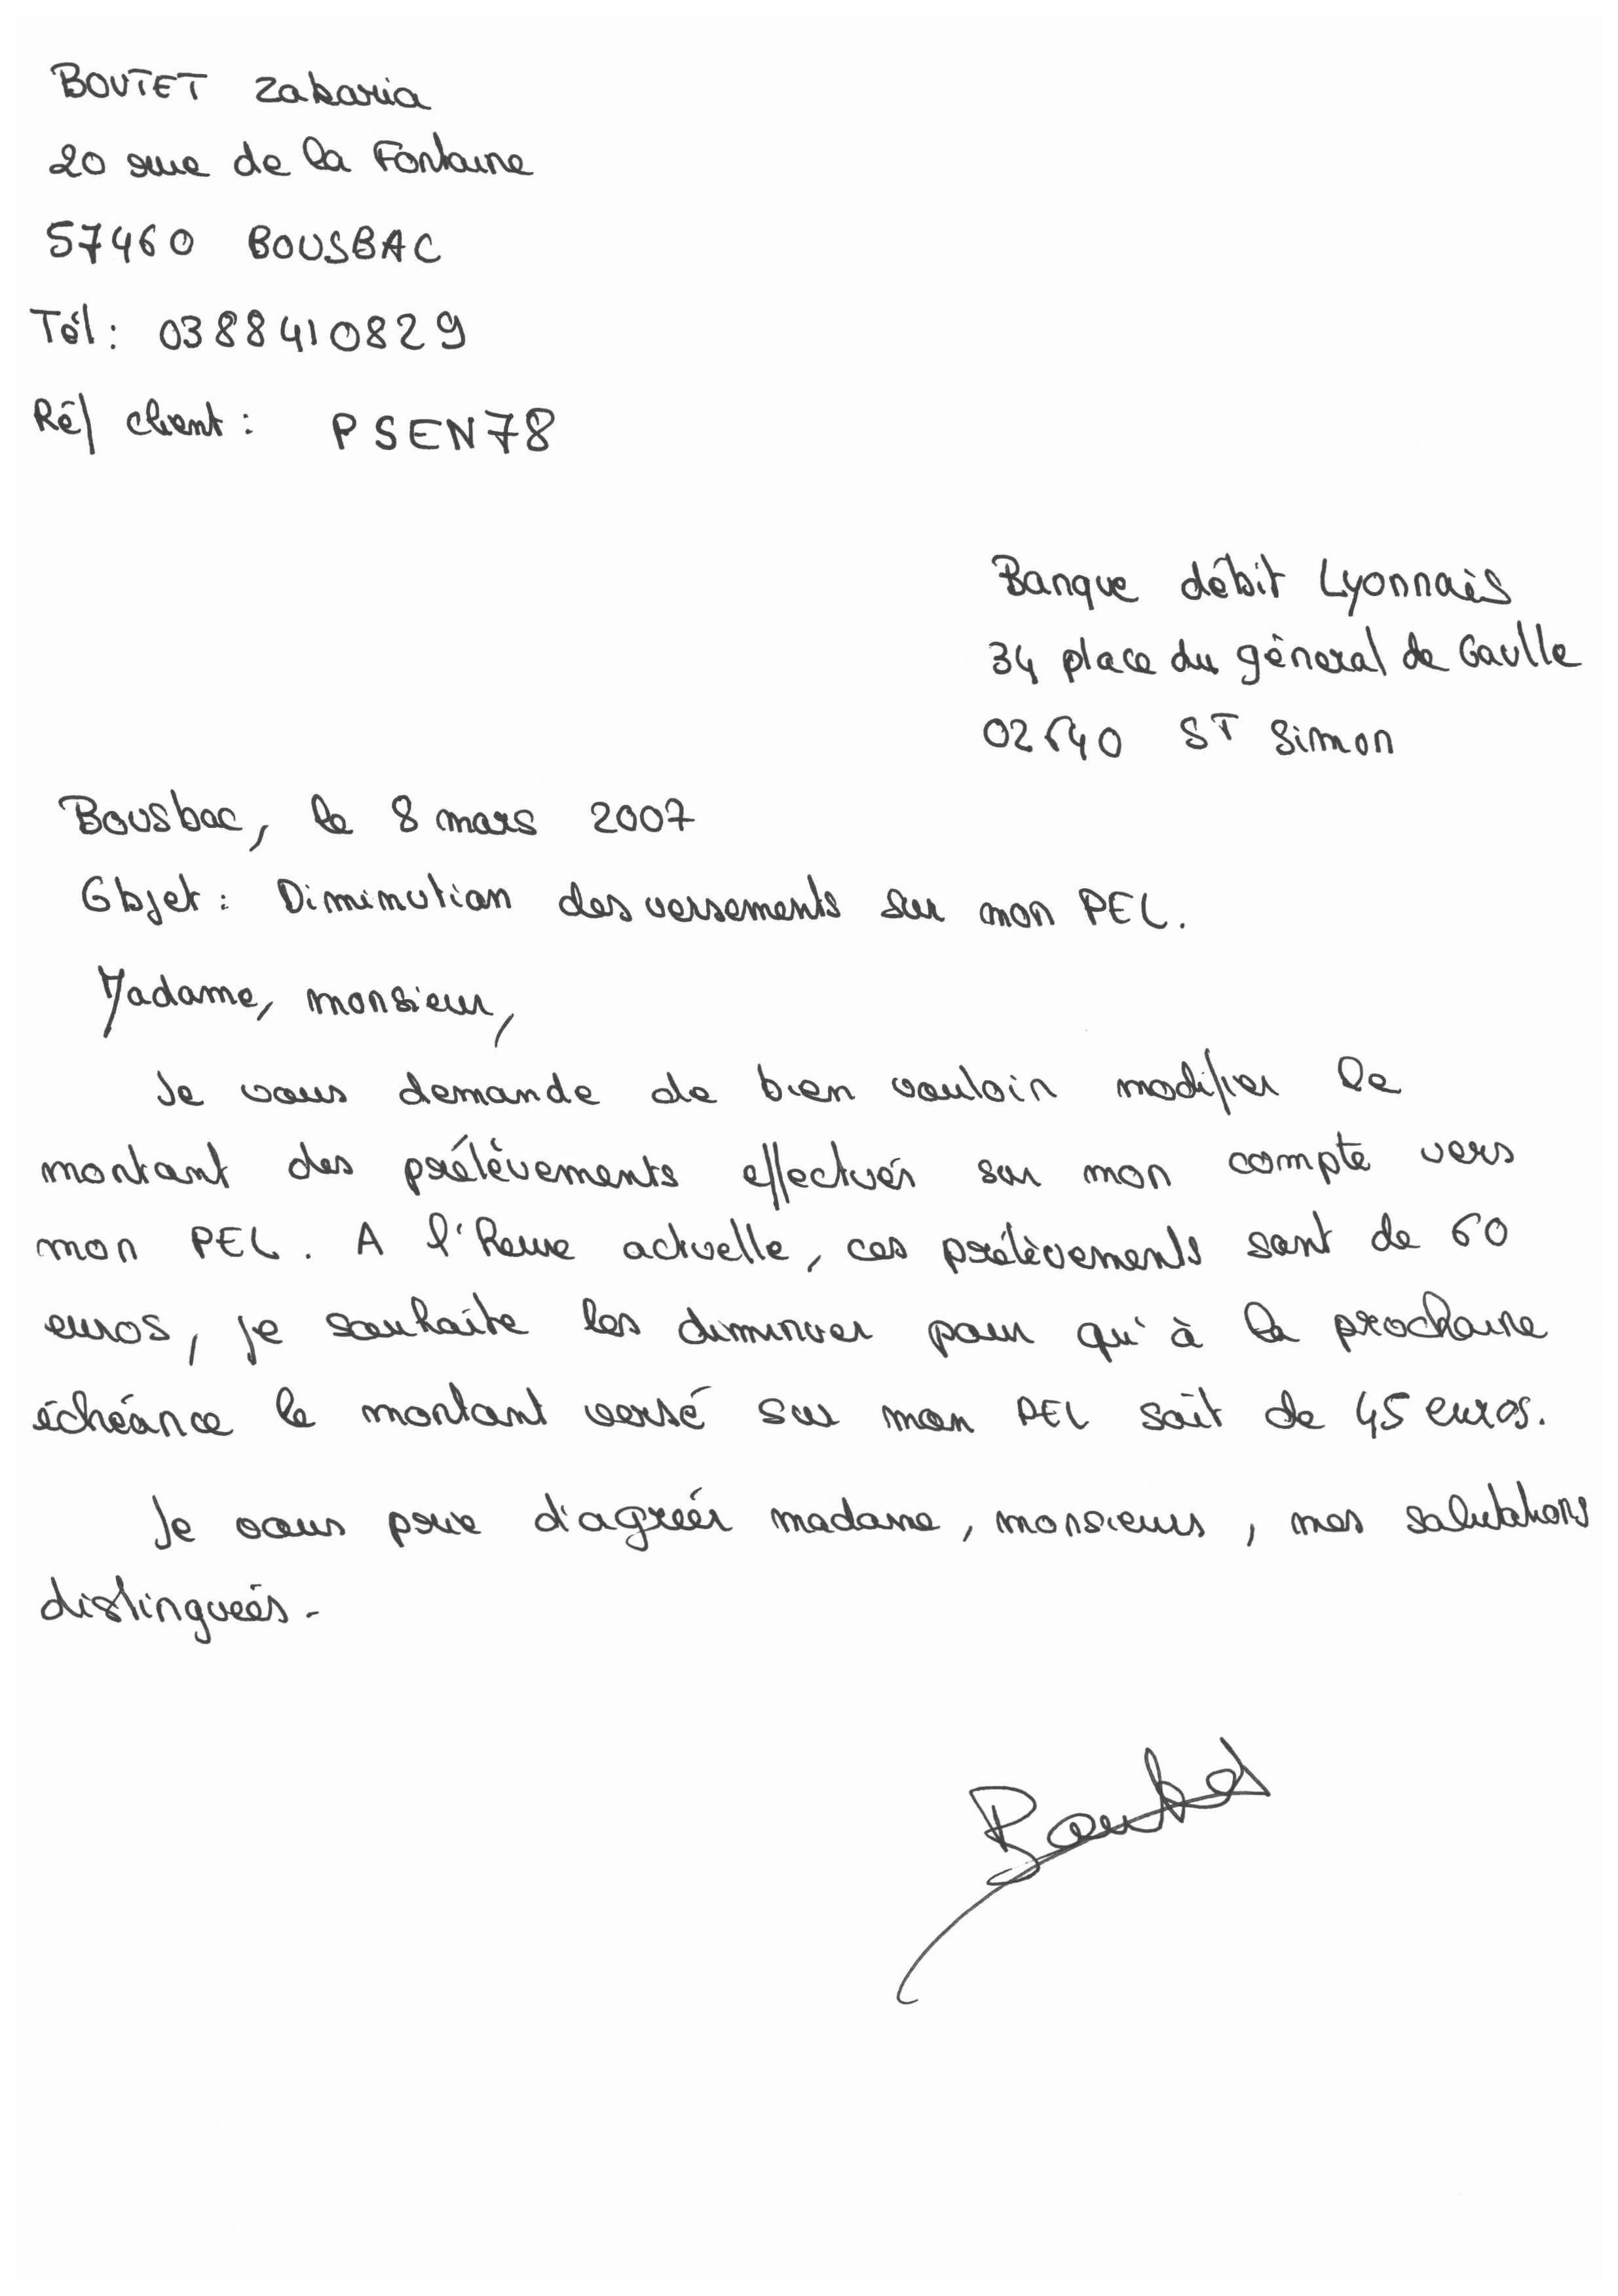 BOUTET Zakaria
20 rue de la Fontaine
57460 BOUSBAC
Tél : 0388410829
Réf client : PSEN78
Banque débit Lyonnais
34 place du général de Gaulle
02640 ST Simon
Bousbac, le 8 mars 2007
Objet : Diminution des versements sur mon PEL.
Madame, monsieur,
Je vous demande de bien vouloir modifier le
montant des prélèvements effectués sur mon compte vers
mon PEL. A l'heure actuelle, ces prélèvements sont de 60
euros, je souhaite les diminuer pour qu'à la prochaine
échéance le montant versé sur mon PEL soit de 45 euros.
Je vous prie d'agréér madame, monsieurs, mes salutations
distinguées.
Boutet